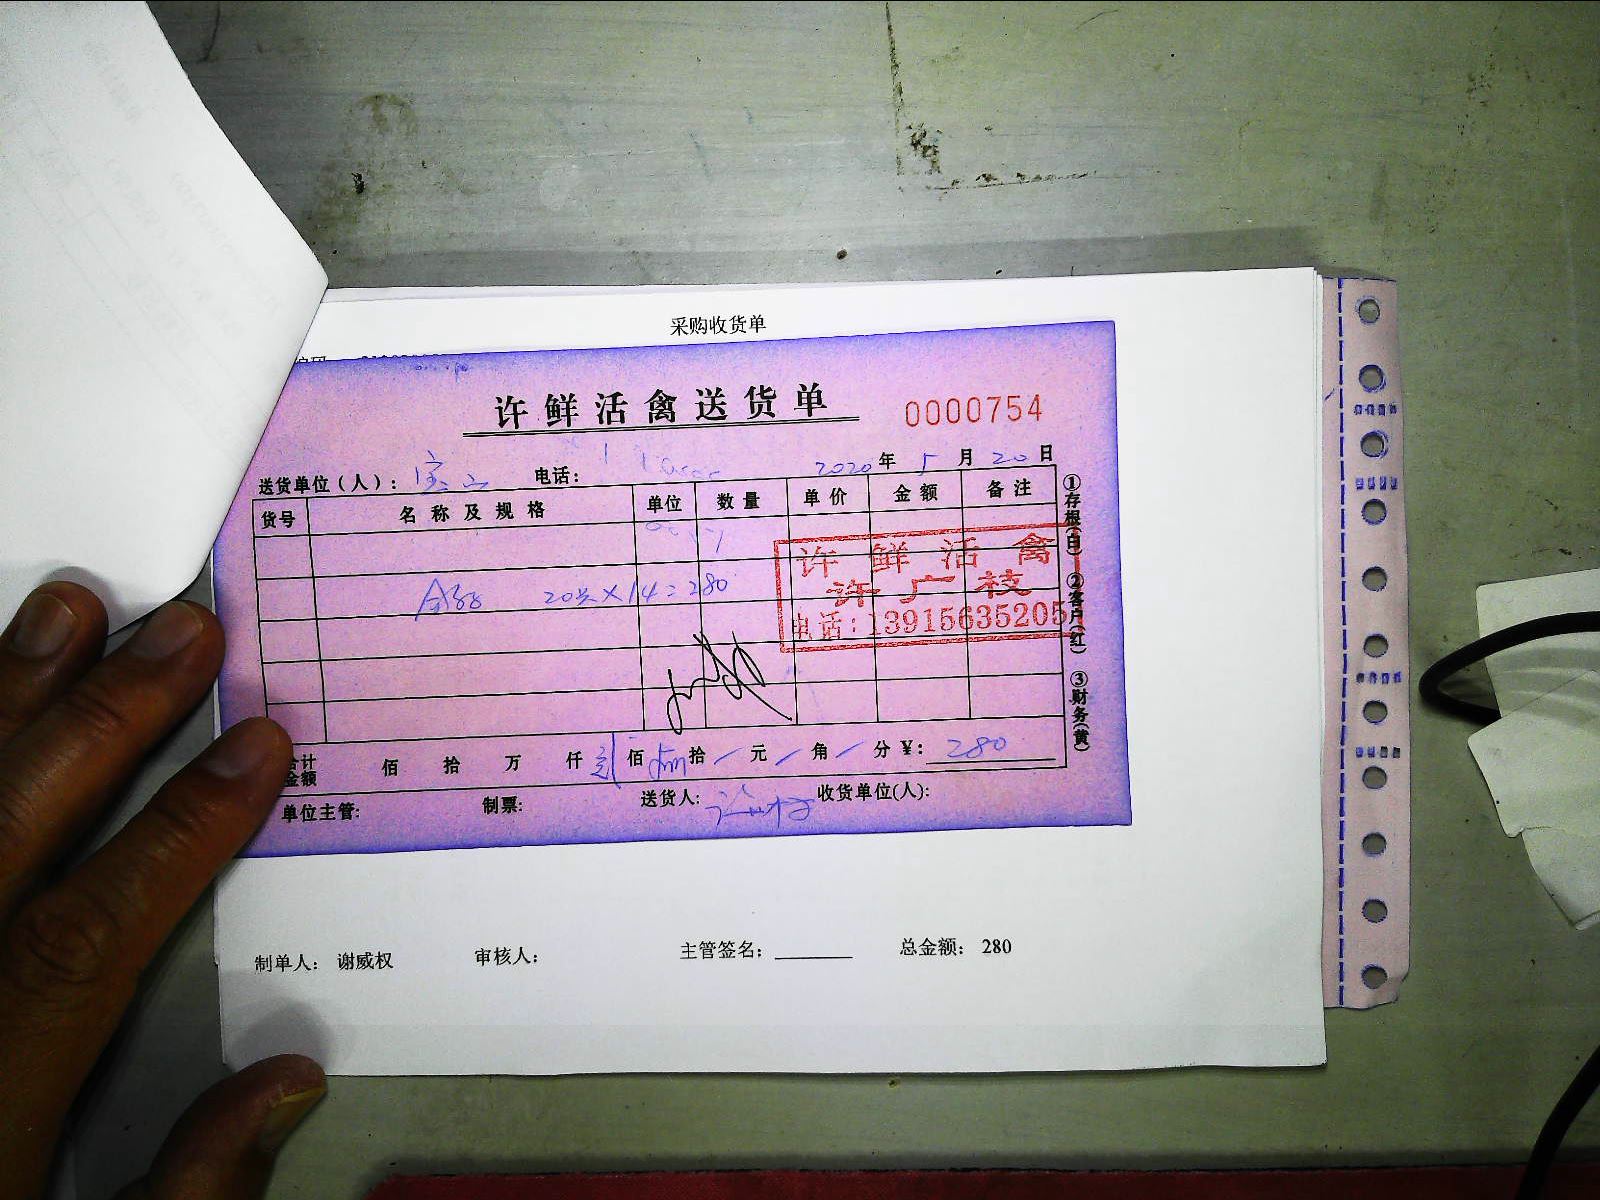 采购收货单
许鲜活禽送货单 0000754
送货单位(人): 宝 电话: 2020年5月20日
货号 名称及规格 单位 数量 单价 金额 备注
①存根(白) ②客户(红) ③财务(黄)
许鲜活禽
许广枝
电话:13915635205
20只×14=280
合计金额 佰 拾 万 仟 贰佰 捌拾 / 元 / 角 / 分 ¥: 280
单位主管: 制票: 送货人: 收货单位(人):
制单人: 谢威权 审核人: 主管签名: 总金额: 280